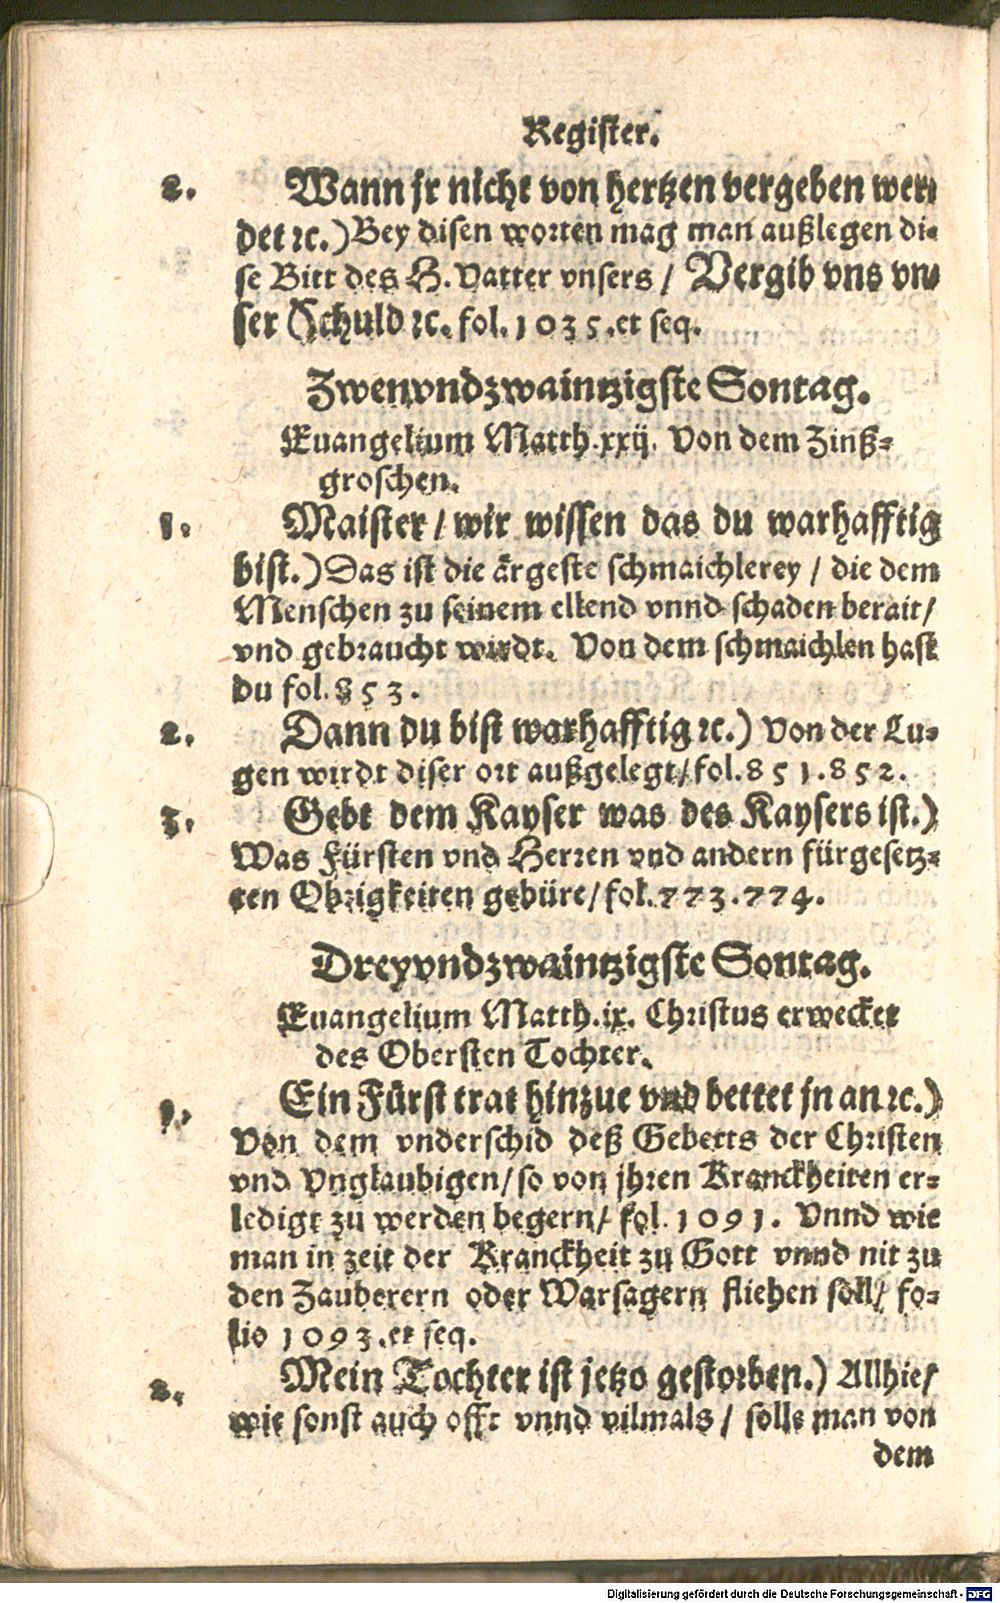 Register.
2. Wann jr nicht von hertzen vergeben wer-
det ꝛc.) Bey disen worten mag man außlegen di-
se Bitt des H. Vatter vnsers / Vergib vns vn-
ser Schuld ꝛc. fol. 1035. et seq.
Zwenvndzwaintzigste Sontag.
Euangelium Matth. xxij. Von dem Zinß-
groschen.
1. Maister / wir wissen das du warhafftig
bist.) Das ist die ärgeste schmaichlerey / die dem
Menschen zu seinem ellend vnnd schaden berait /
vnd gebraucht wirdt. Von dem schmaichlen hast
du fol. 853.
2. Dann du bist warhafftig ꝛc.) Von der Lu-
gen wirdt diser ort außgelegt / fol. 851. 852.
3. Gebt dem Kayser was des Kaysers ist.)
Was Fürsten vnd Herren vnd andern fürgesetz-
ten Obrigkeiten gebüre / fol. 773. 774.
Dreyvndzwaintzigste Sontag.
Euangelium Matth. ix. Christus erwecket
des Obersten Tochter.
1. Ein Fürst trat hinzue vnd bettet jn an ꝛc.)
Von dem vnderschid deß Gebetts der Christen
vnd Vnglaubigen / so von jhren Kranckheiten er-
ledigt zu werden begern / fol. 1091. Vnnd wie
man in zeit der Kranckheit zu Gott vnnd nit zu
den Zauberern oder Warsagern fliehen soll / fo-
lio 1093. et seq.
2. Mein Tochter ist jetzo gestorben.) Allhie /
wie sonst auch offt vnnd vilmals / solle man von
dem
Digitalisierung gefördert durch die Deutsche Forschungsgemeinschaft - DFG